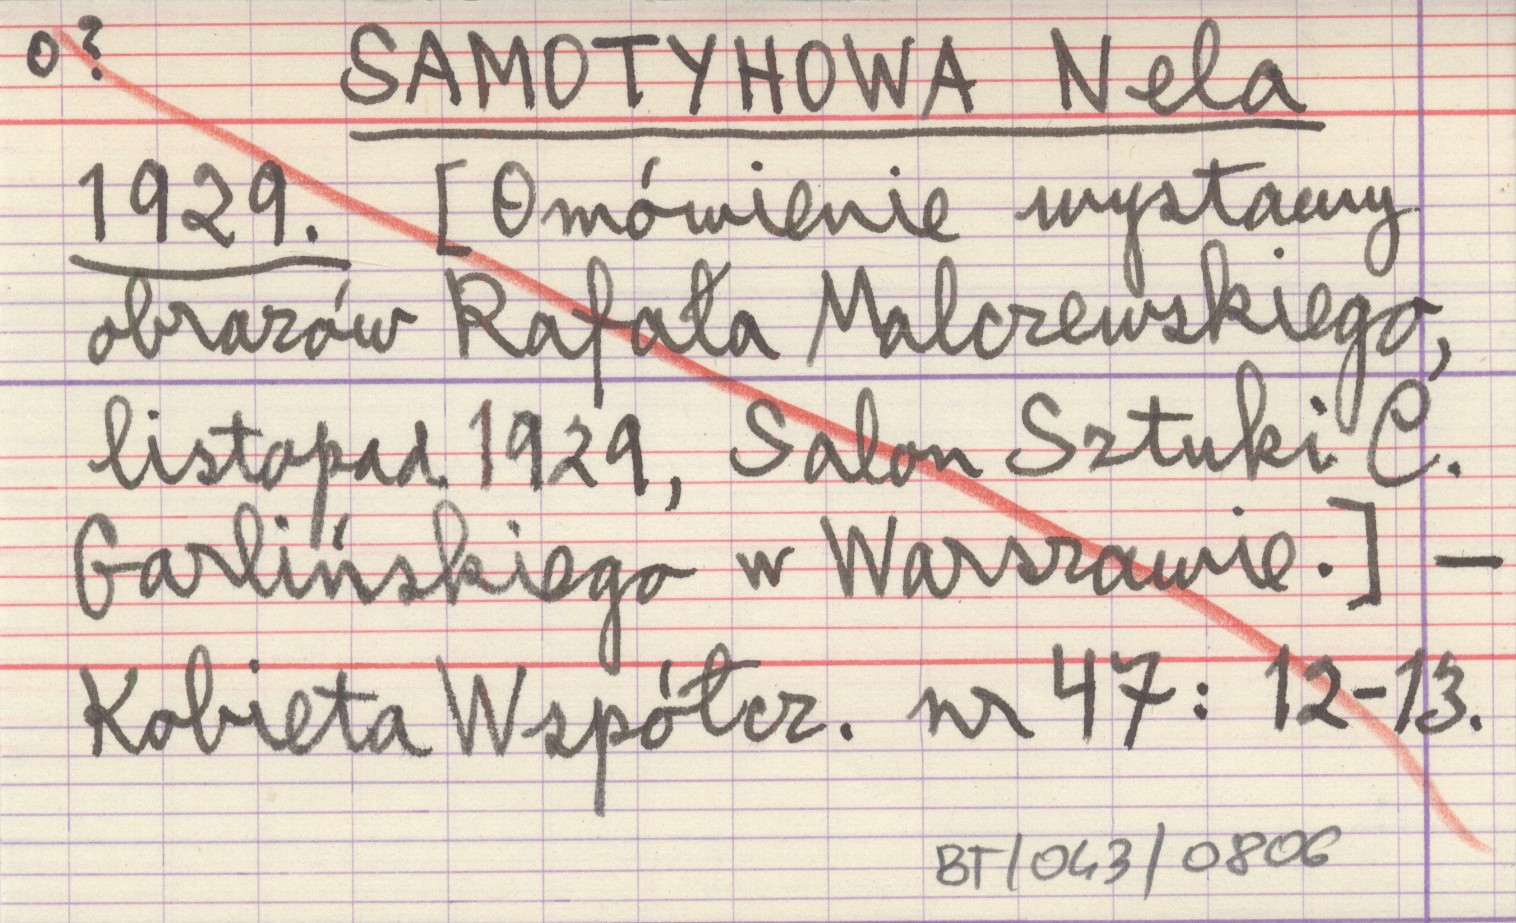 o?
SAMOTYHOWA Nela
1929. [Omówienie wystawy
obrazów Rafała Malczewskiego,
listopad 1929, Salon Sztuki C.
Garlińskiego w Warszawie.] —
Kobieta Współcz. nr 47: 12-13.
BT/043/0806